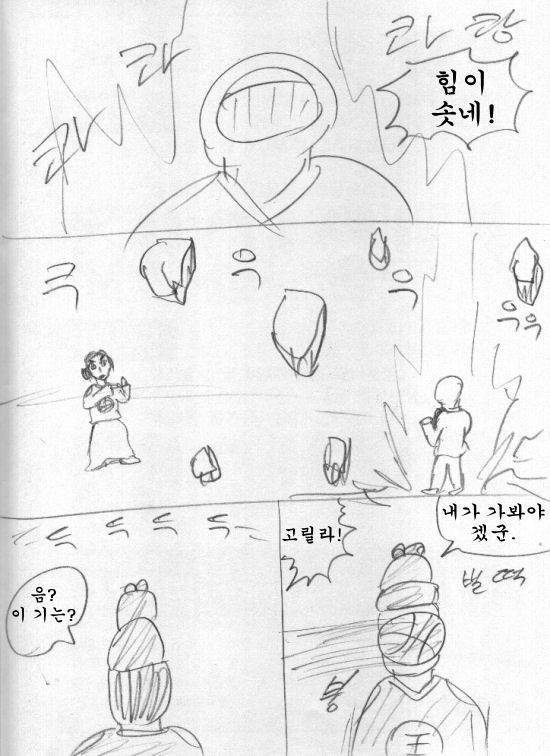 콰
콰
콰 쾅
힘이
솟네!
쿠
우
우
우우
드 드 드 드 드
음?
이 기는?
고릴라!
내가 가봐야
겠군.
벌떡
붕
王